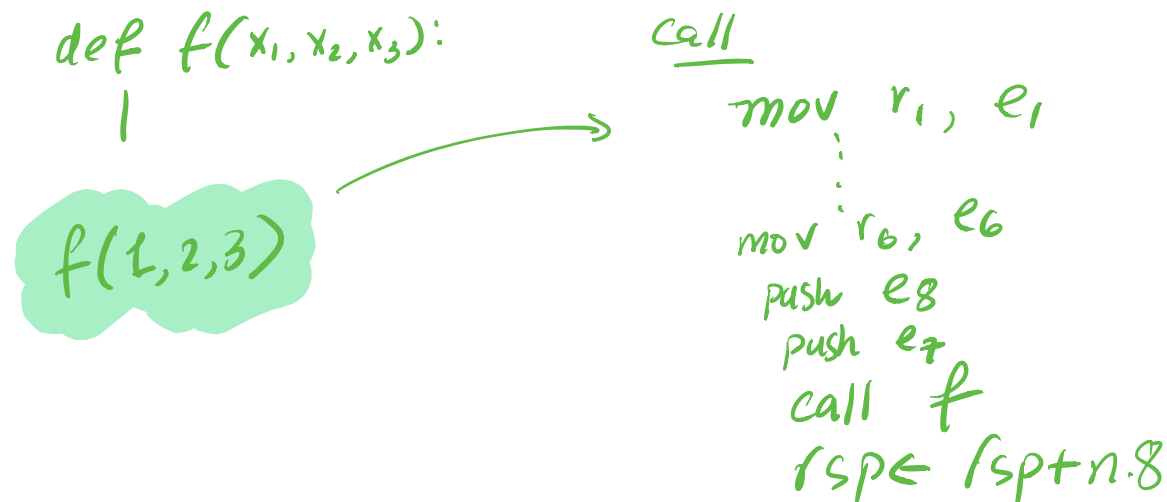 def f(x₁, x₂, x₃):
f(1, 2, 3)
call
mov r₁, e₁
mov r₆, e₆
push e₈
push e₇
call f
rsp ← rsp + n.8